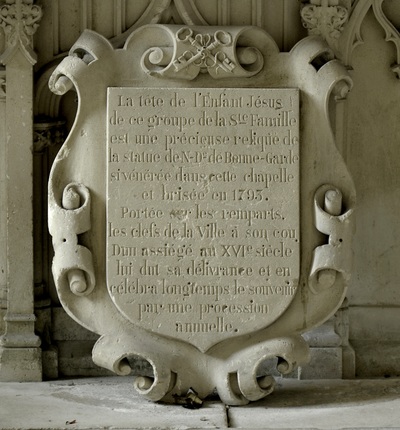 La tête de l'Enfant Jésus
de ce groupe de la Ste Famille
est une précieuse relique de
la statue de N-De de Bonne-Garde
si vénérée dans cette chapelle
et brisée en 1793.
Portée sur les remparts,
les clefs de la Ville à son cou,
Dun assiégé au XVIe siècle
lui dut sa délivrance et en
célébra longtemps le souvenir
par une procession
annuelle.